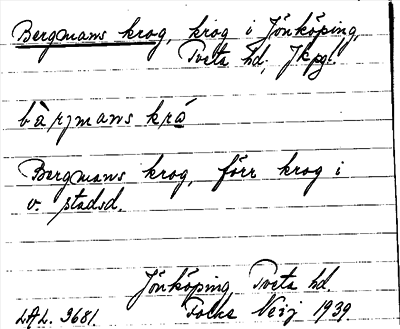 Bergmans krog, krog i Jönköping,
Tveta hd, Jkpg.
bärjmans krå
Bergmans krog, förr krog i
v. stadsd.
Jönköping Tveta hd.
LAL. 3681. Folke Neij 1939